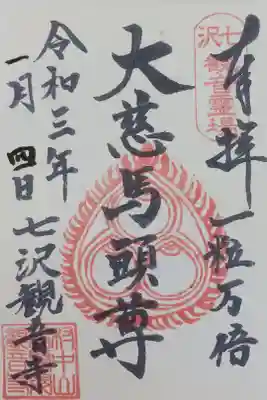 奉拝 一粒万倍
七沢
観音霊場
大慈馬頭尊
七沢観音寺
令和三年
一月四日